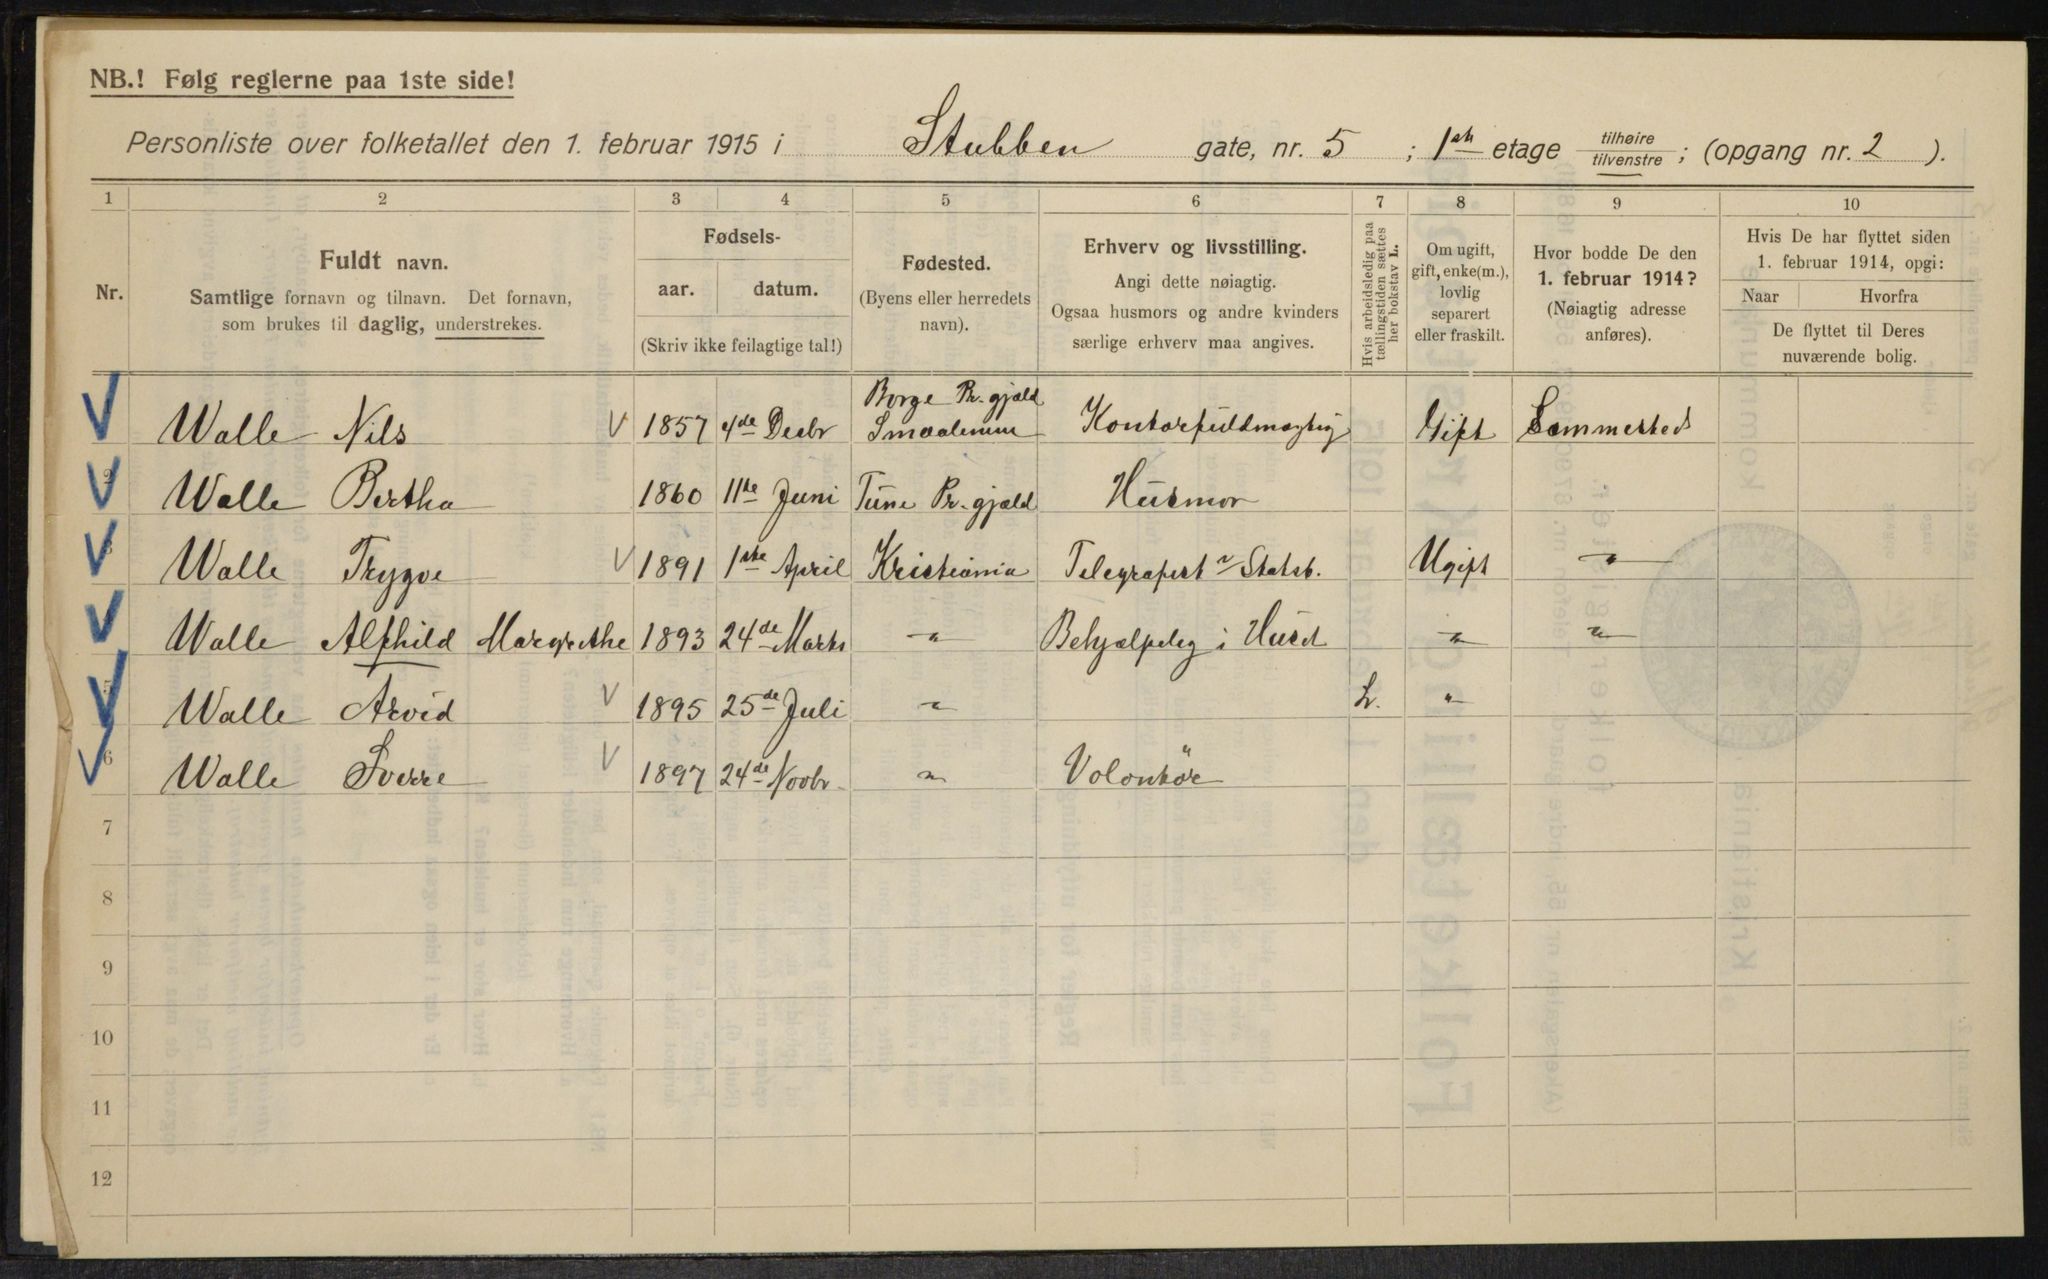 NB.! Følg reglerne paa 1ste side!
Personliste over folketallet den 1. februar 1915 i Stubben gate, nr. 5 ; 1ste etage tilhøire tilvenstre ; (opgang nr. 2 ).
1 2 3 4 5 6 7 8 9 10
Nr.
Fuldt navn.
Samtlige fornavn og tilnavn. Det fornavn,
som brukes til daglig, understrekes.
Fødsels-
aar. datum.
(Skriv ikke feilagtige tal!)
Fødested.
(Byens eller herredets
navn).
Erhverv og livsstilling.
Angi dette nøiagtig.
Ogsaa husmors og andre kvinders
særlige erhverv maa angives.
Hvis arbeidsledig paa
tællingstiden sættes
her bokstav L.
Om ugift,
gift, enke(m.),
lovlig
separert
eller fraskilt.
Hvor bodde De den
1. februar 1914?
(Nøiagtig adresse
anføres).
Hvis De har flyttet siden
1. februar 1914, opgi:
Naar Hvorfra
De flyttet til Deres
nuværende bolig.
Walle Nils 1857 4de Decbr Borge Pr.gjæld Smaalenene Kontorfuldmægtig Gift Sammested
2 Walle Bertha 1860 11te Juni Tune Pr.gjæld Husmor
3 Walle Trygve 1891 1ste April Kristiania Telegrafist v/ Statsb. Ugift "
Walle Alfhild Margrethe 1893 24de Marts " Behjælpelig i Huset " "
5 Walle Arvid 1895 25de Juli " L. "
6 Walle Sverre 1897 24de Novbr. " Volontør
7
8
9
10
11
12